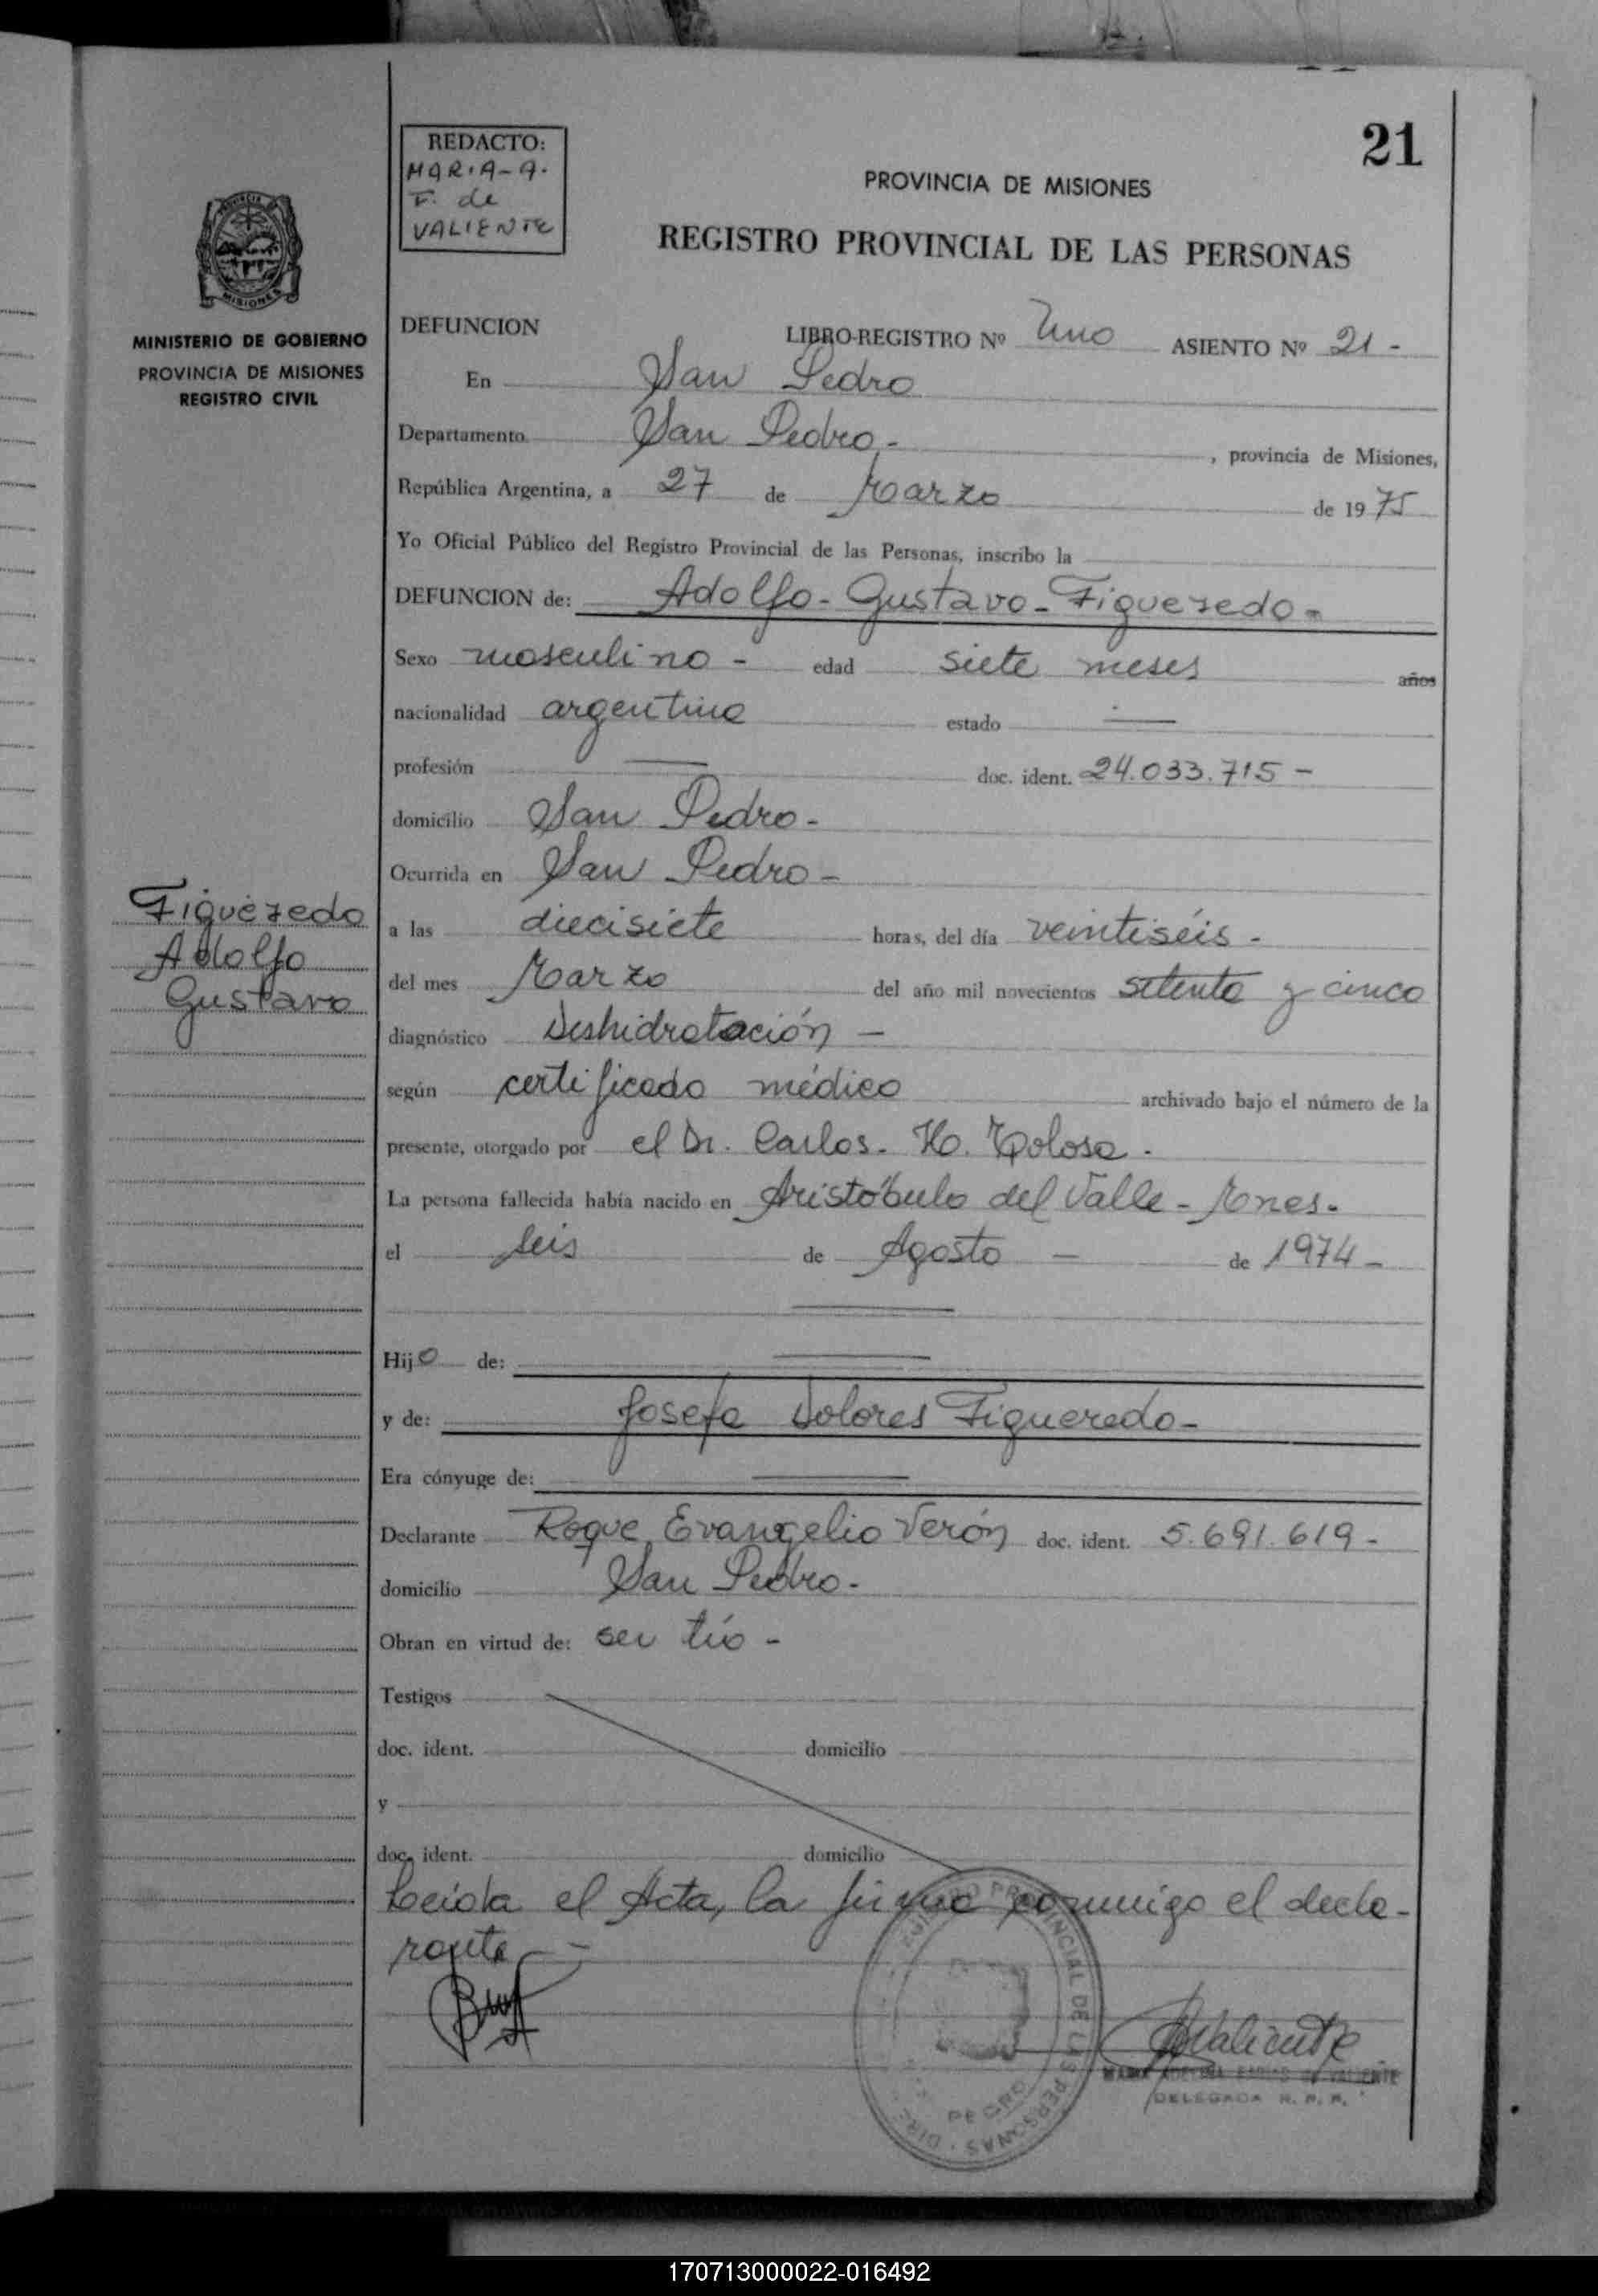 21
REDACTO:
MARIA-A.
F. de
VALIENTE
PROVINCIA DE MISIONES
REGISTRO PROVINCIAL DE LAS PERSONAS
MISIONES
MINISTERIO DE GOBIERNO
PROVINCIA DE MISIONES
REGISTRO CIVIL
DEFUNCION LIBRO-REGISTRO Nº Uno ASIENTO Nº 21 -
En San Pedro
Departamento San Pedro - , provincia de Misiones,
República Argentina, a 27 de Marzo de 1975
Yo Oficial Público del Registro Provincial de las Personas, inscribo la
DEFUNCION de: Adolfo - Gustavo - Figueredo -
Sexo masculino - edad siete meses años
nacionalidad argentina estado —
profesión — doc. ident. 24.033.715 -
domicilio San Pedro -
Ocurrida en San Pedro -
Figueredo
Adolfo
Gustavo
a las diecisiete horas, del día veintiséis -
del mes Marzo del año mil novecientos setenta y cinco
diagnóstico Deshidratación -
según certificado médico archivado bajo el número de la
presente, otorgado por el Dr. Carlos - H. Tolosa -
La persona fallecida había nacido en Aristóbulo del Valle - Mnes.
el seis de Agosto - de 1974 -
Hijo de: —
y de: Josefa Dolores Figueredo -
Era cónyuge de: —
Declarante Roque Evangelio Verón doc. ident. 5.691.619 -
domicilio San Pedro -
Obran en virtud de: ser tío -
Testigos
doc. ident. domicilio
y
doc. ident. domicilio
Leida el Acta, la firma conmigo el decla-
rante -
PROVINCIAL DE LAS PERSONAS
PEDRO
Valiente
DE VALIENTE
DELEGADA R. P. P.
170713000022-016492